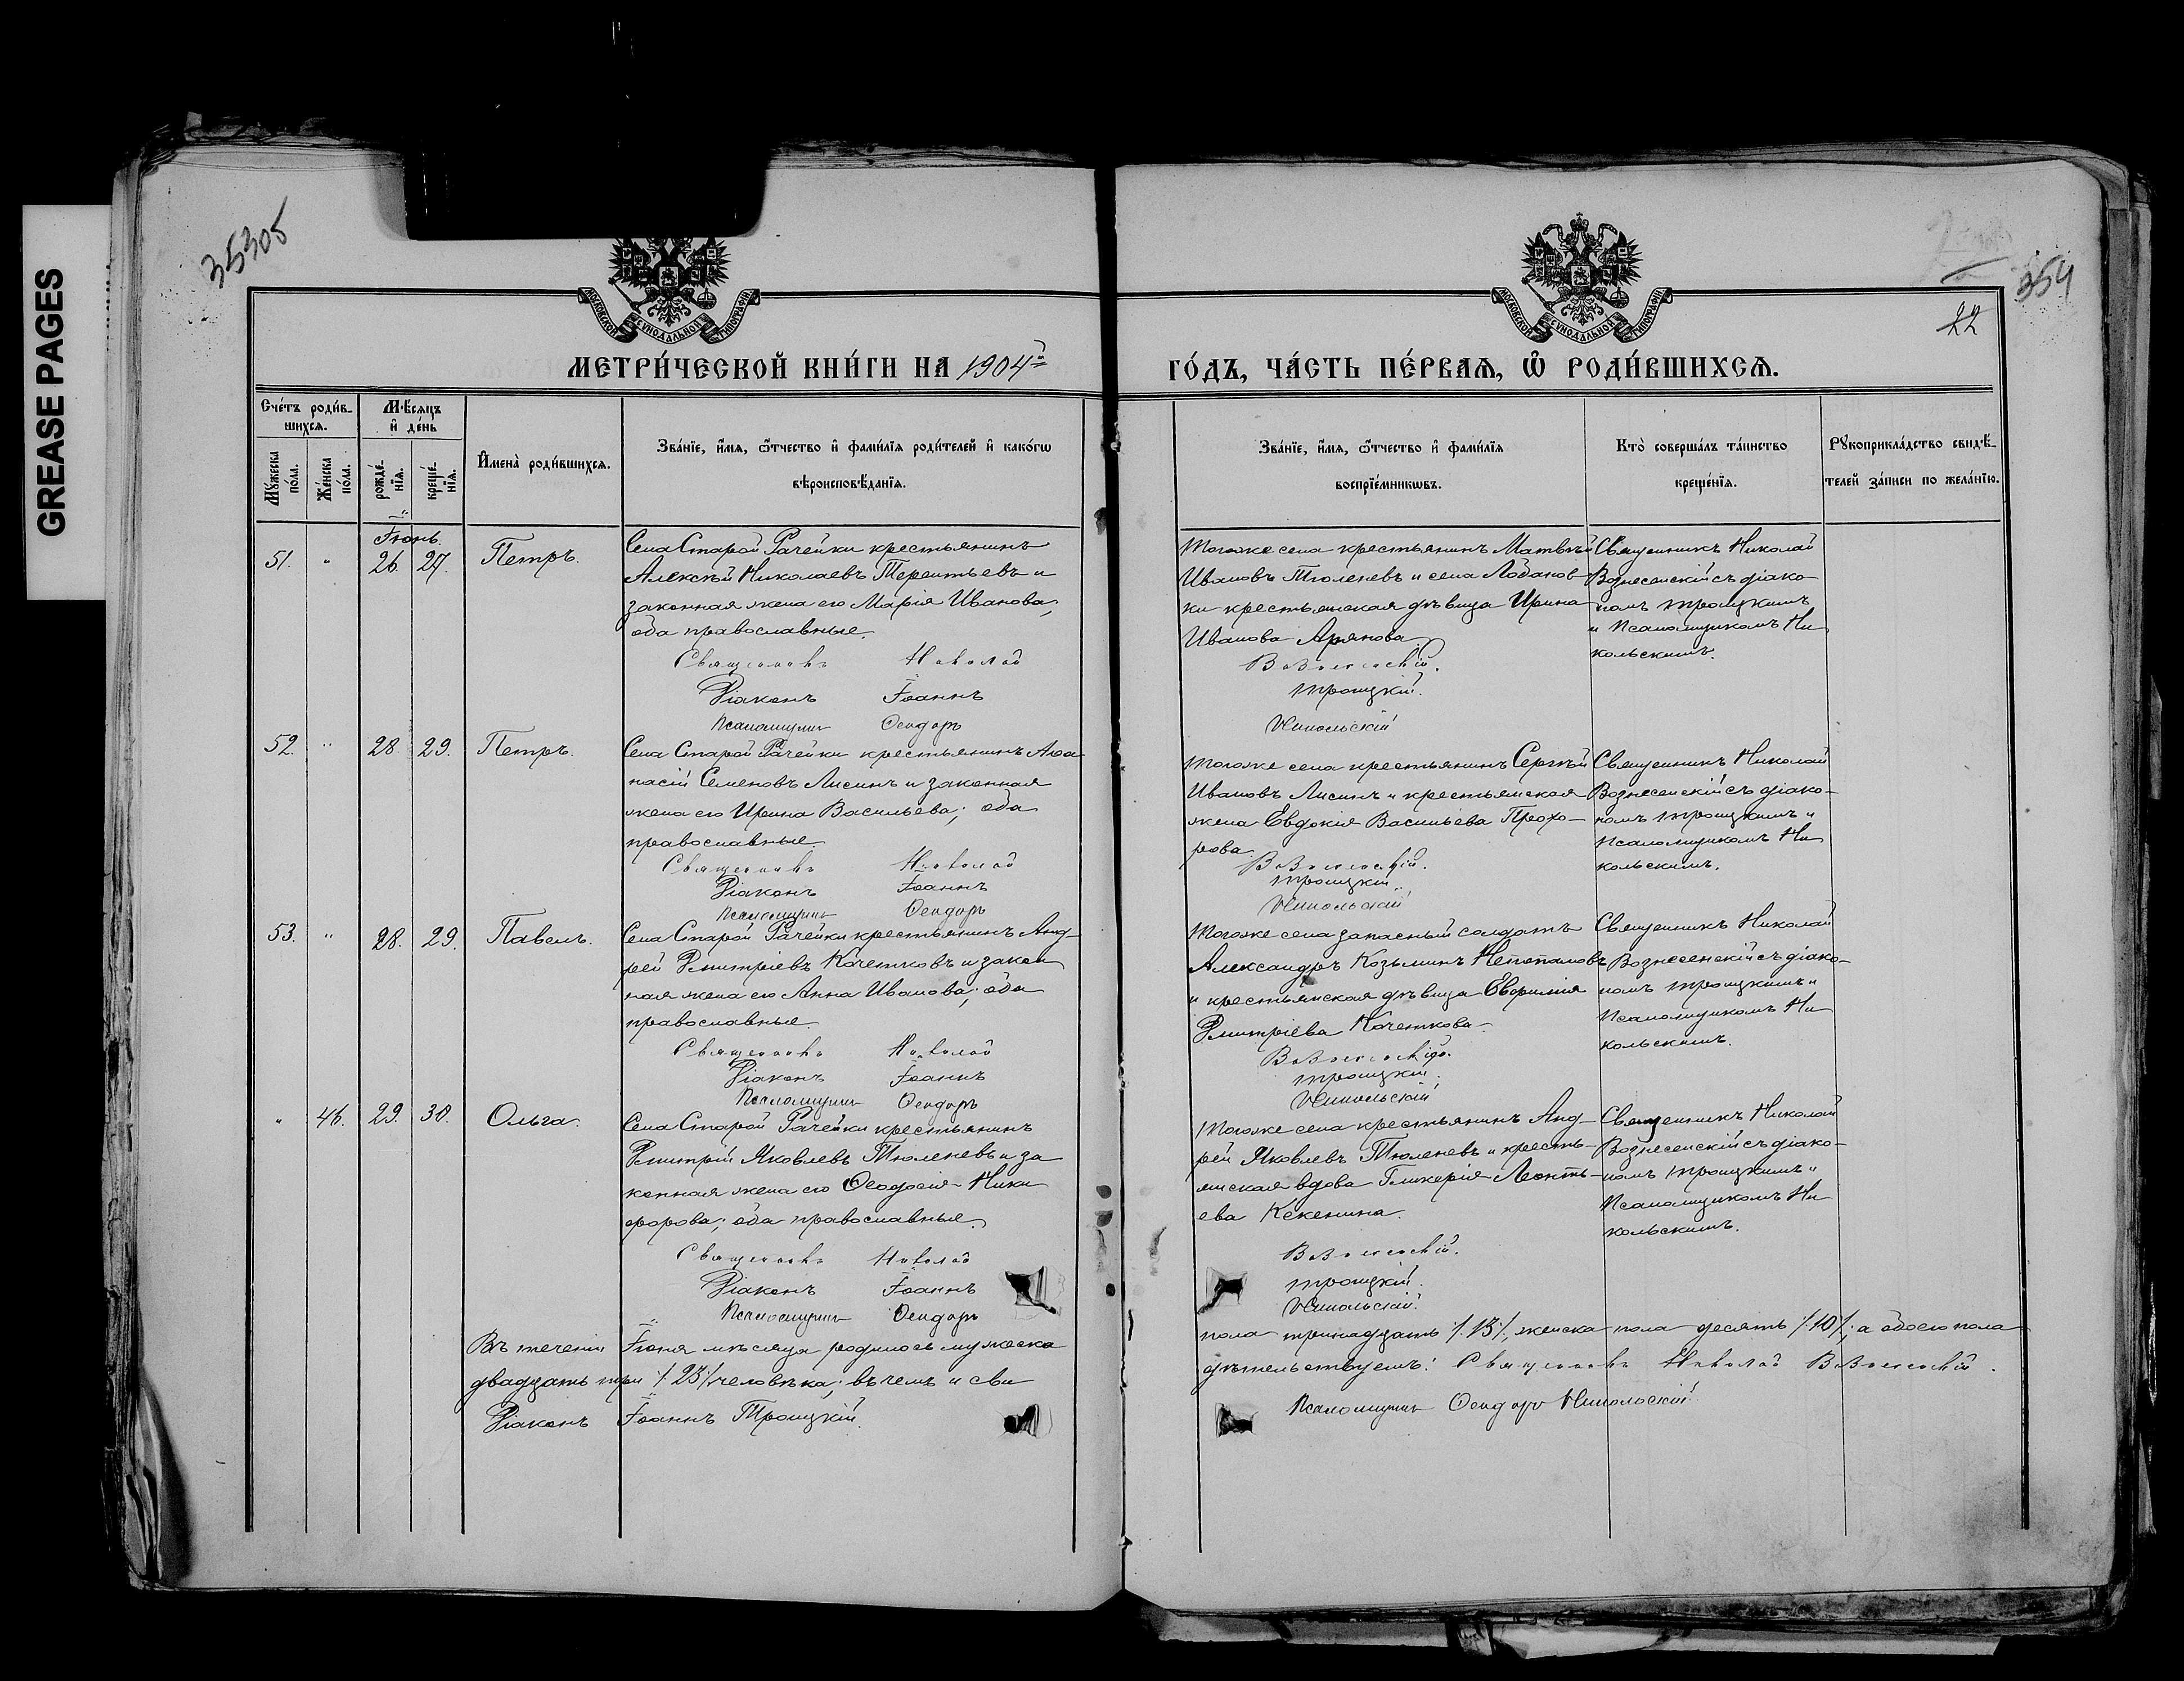 GREASE PAGES
35305
354
22
МОСКОВСКОЙ СѴНОДАЛЬНОЙ ТИПОГРАФІИ
МОСКОВСКОЙ СѴНОДАЛЬНОЙ ТИПОГРАФІИ
МЕТРИ́ЧЕСКОЙ КНИ́ГИ НА 1904й
ГО́ДЪ, ЧА́СТЬ ПЕ́РВАѦ, Ѡ҆ РОДИ́ВШИХСѦ.
Сче́тъ роди́в-
шихсѧ.
Мꙋ́жеска по́ла.
Же́нска по́ла.
Мѣ́сѧцъ и҆ де́нь
рожде́-нїѧ.
креще́-нїѧ.
И҆мена̀ роди́вшихсѧ.
Зва́нїе, и҆́мѧ, ѻ҆́тчество и҆ фами́лїѧ роди́телей и҆ како́гѡ
вѣроисповѣ́данїѧ.
Зва́нїе, и҆́мѧ, ѻ҆́тчество и҆ фами́лїѧ
воспрїе́мникѡвъ.
Кто̀ соверша́лъ та́инство
креще́нїѧ.
Рꙋкоприкла́дство свидѣ́-
телей за́писи по жела́нїю.
Іюнь.
51. " 26. 27. Петръ.
Села Старой Рачейки крестьянинъ
Алексѣй Николаевъ Терентьевъ и
законная жена его Марія Иванова;
оба православные.
Священникъ Николай
Діаконъ Іоаннъ
Псаломщикъ Ѳеодоръ
Тогоже села крестьянинъ Матвѣй
Ивановъ Тюленевъ и села Лобанов-
ки крестьянская дѣвица Ирина
Иванова Арянова.
Вознесенскій.
Троицкій.
Никольскій
Священникъ Николай
Вознесенскій съ діако-
номъ Троицкимъ
и Псаломщикомъ Ни
кольскимъ.
52. " 28. 29. Петръ.
Села Старой Рачейки крестьянинъ Аѳа
насій Семеновъ Лисинъ и законная
жена его Ирина Васильева; оба
православные.
Священникъ Николай
Діаконъ Іоаннъ
Псаломщикъ Ѳеодоръ
Тогоже села крестьянинъ Сергѣй
Ивановъ Лисинъ и крестьянская
жена Евдокія Васильева Прохо-
рова.
Вознесенскій.
Троицкій.
Никольскій
Священникъ Николай
Вознесенскій съ діако-
номъ Троицкимъ и
Псаломщикомъ Ни
кольскимъ.
53. " 28. 29. Павелъ.
Села Старой Рачейки крестьянинъ Анд-
рей Дмитріевъ Кочетковъ и закон
ная жена его Анна Иванова; оба
православные.
Священникъ Николай
Діаконъ Іоаннъ
Псаломщикъ Ѳеодоръ
Тогоже села запасный солдатъ
Александръ Козьминъ
и крестьянская дѣвица Евфимія
Дмитріева Кочеткова.
Вознесенскій.
Троицкій.
Никольскій
Священникъ Николай
Вознесенскій съ діако-
номъ Троицкимъ и
Псаломщикомъ Ни
кольскимъ.
" 46. 29. 30. Ольга.
Села Старой Рачейки крестьянинъ
Дмитрій Яковлевъ Тюленевъ и за
конная жена его Ѳеодосія Ники
форова; оба православные.
Священникъ Николай
Діаконъ Іоаннъ
Псаломщикъ Ѳеодоръ
Тогоже села крестьянинъ Анд-
рей Яковлевъ Тюленевъ и кресть-
янская вдова Гликерія Леонть-
ева Кекенина.
Вознесенскій.
Троицкій.
Никольскій.
Священникъ Николай
Вознесенскій съ діако-
номъ Троицкимъ и
Псаломщикомъ Ни
кольскимъ.
Въ теченіи Іюня мѣсяца родилось мужеска пола тринадцать /.13./, женска пола десять /.10./, а обоего пола
двадцать три /.23./ человѣка; въ чемъ и сви дѣтельствуемъ: Священникъ Николай Вознесенскій.
Діаконъ Іоаннъ Троицкій. Псаломщикъ Ѳеодоръ Никольскій